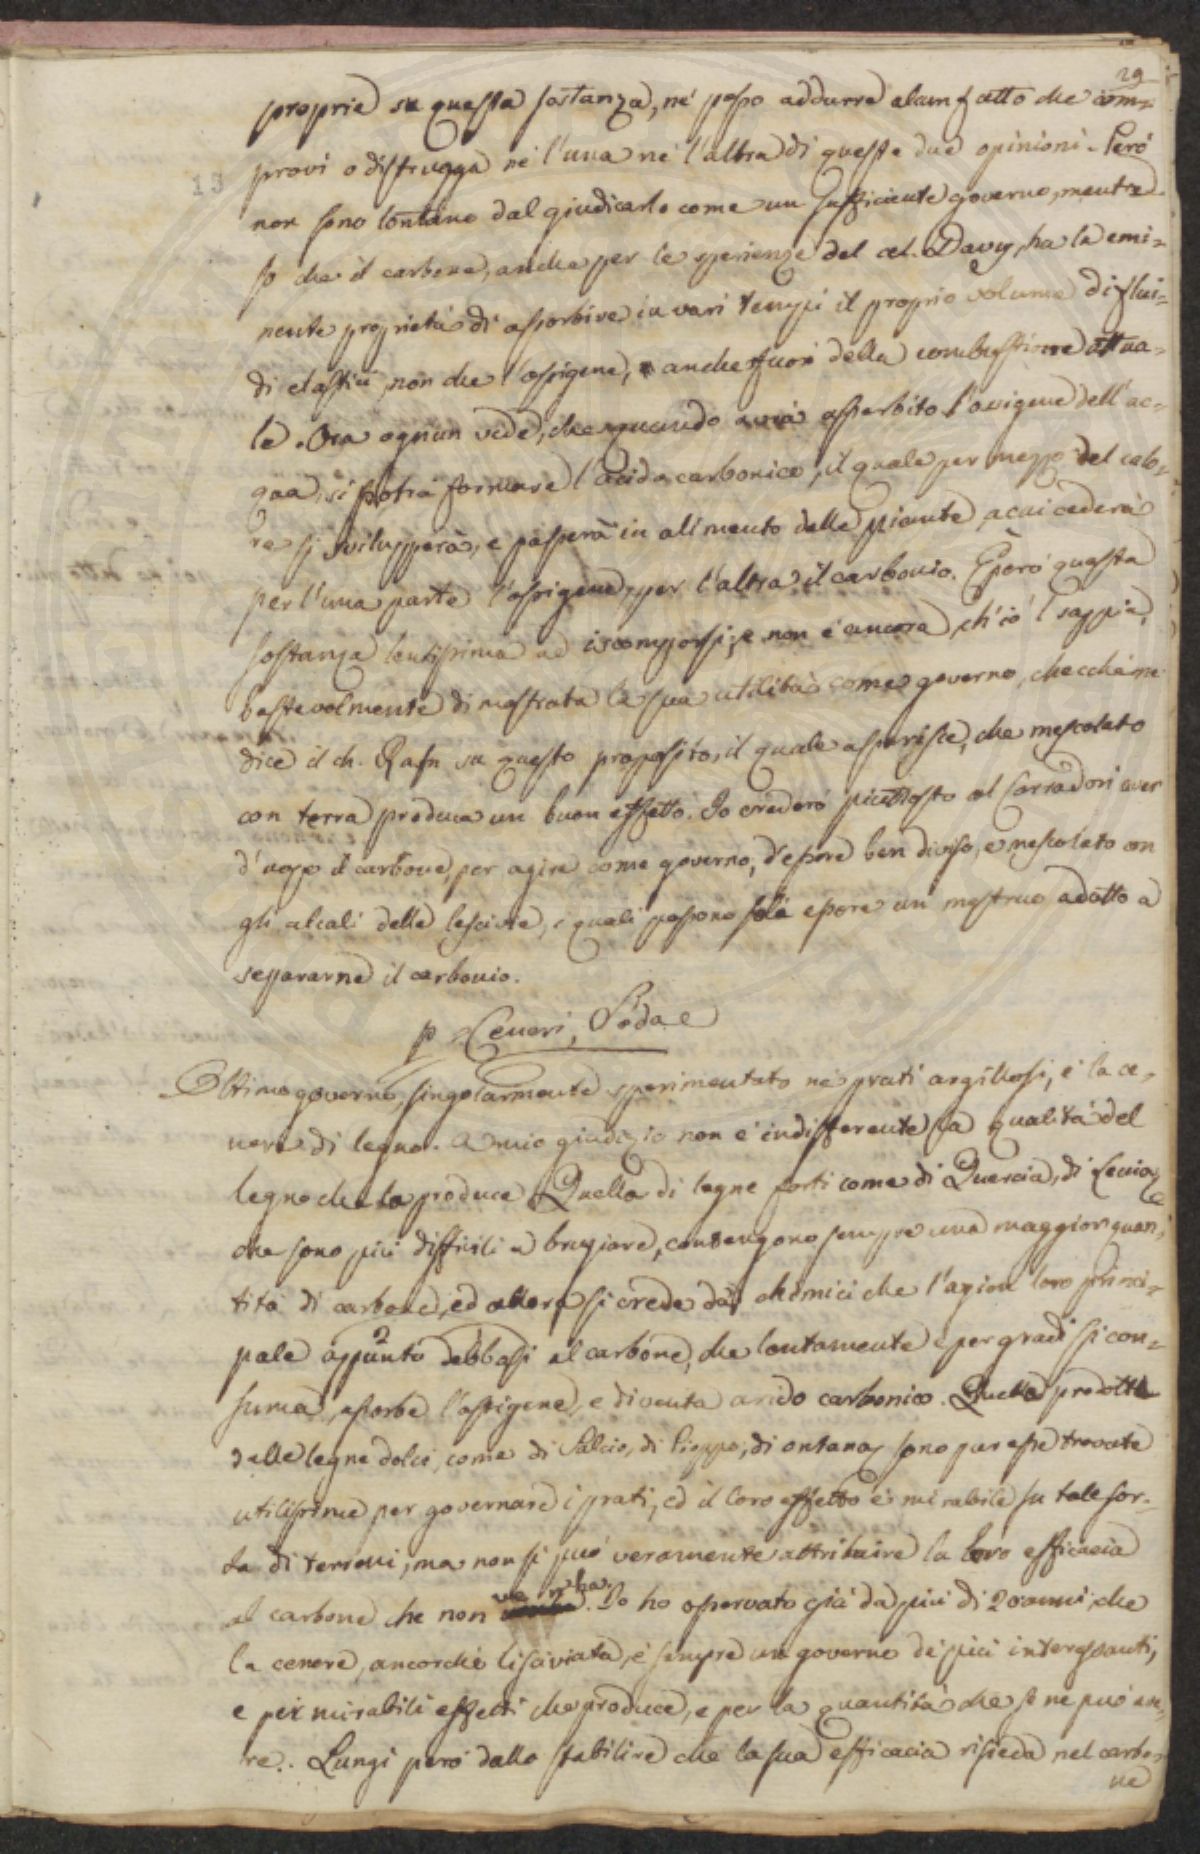 29
proprie su questa sostanza, nè posso addurre alcun fatto che com=
provi o distrugga nè l'una nè l'altra di queste due opinioni. Però
non sono lontano dal giudicarlo come un sufficiente governo, mentre
so che il carbone, anche per le sperienze del cel. Davy, ha la emi=
nente proprietà di assorbire in vari tempi il proprio volume di flui=
di elastici, non che l'ossigene, anche fuori della combustione attua=
le. Ora ognun vede, che quando avrà assorbito l'ossigene dell'ac=
qua, si potrà formare l'acido carbonico, il quale per mezzo del calo=
re si svilupperà, e passerà in alimento delle piante, a cui cederà
per l'una parte l'ossigene, per l'altra il carbonio. È però questa
sostanza lentissima ad iscomporsi, e non è ancora, ch'io 'l sappia,
bastevolmente dimostrata la sua utilità come governo, checchè ne
dice il ch. Rafn su questo proposito, il quale asserisce, che mescolato
con terra produca un buon effetto. Io crederò piuttosto al Corradori aver
d'uopo il carbone, per agire come governo, d'essere ben diviso, e mescolato con
gli alcali delle lescivie, i quali possono soli essere un mestruo adatto a
separarne il carbonio.
p Ceneri, Soda e
Ottimo governo, singolarmente sperimentato ne' prati argillosi, è la ce=
nere di legno. A mio giudizio non è indifferente la qualità del
legno che la produce. Quella di legne forti come di Quercia, di Leccio,
che sono più difficili a brugiare, contengono sempre una maggior quan=
tità di carbone, ed allora si crede da' chimici che l'azion loro princi=
pale appunto debbasi al carbone, che lentamente e per gradi si con=
suma, assorbe l'ossigene, e diventa acido carbonico. Quella prodotta
dalle legne dolci, come di Salcio, di Pioppo, di ontano, sono pur esse trovate
utilissime per governare i prati, ed il loro effetto è mirabile su tale sor=
ta di terreni, ma non si può veramente attribuire la loro efficacia
al carbone che non ve n'ha. Io ho osservato già da più di 20 anni, che
la cenere, ancorchè lisciviata, è sempre un governo de' più interessanti,
e pei mirabili effetti che produce, e per la quantità che se ne può ave=
re. Lungi però dallo stabilire che la sua efficacia risieda nel carbo=
ne